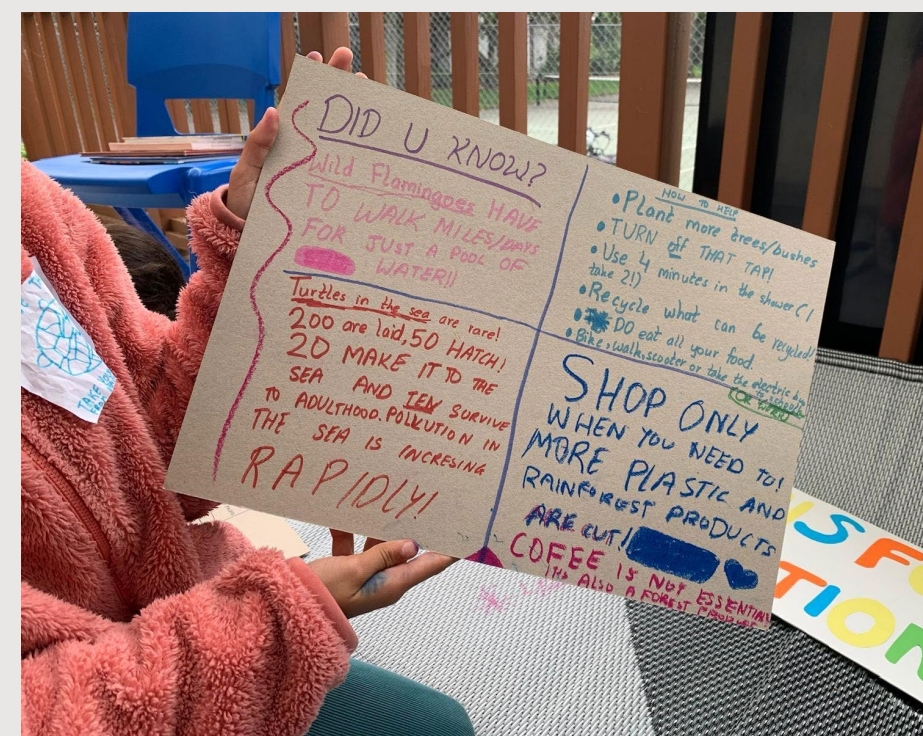 DID U KNOW?
Wild Flamingoes HAVE
TO WALK MILES/DAYS
FOR JUST A POOL OF
WATER!!
Turtles in the sea are rare!
200 are laid, 50 HATCH!
20 MAKE IT TO THE
SEA AND TEN SURVIVE
TO ADULTHOOD. POLLUTION IN
THE SEA IS INCRESING
RAPIDLY!
HOW TO HELP
•Plant more trees/bushes
•TURN off THAT TAP!
•Use 4 minutes in the shower (I
take 2!)
•Recycle what can be recycled!
•DO eat all your food.
•Bike, walk, scooter or take the electric
to school
OR WORK
SHOP ONLY
WHEN YOU NEED TO!
MORE PLASTIC AND
RAINFOREST PRODUCTS
ARE CUT!
COFEE IS NOT ESSENTIAL
ITS ALSO A FOREST PRODUCT
TAKE
IS FO
TION